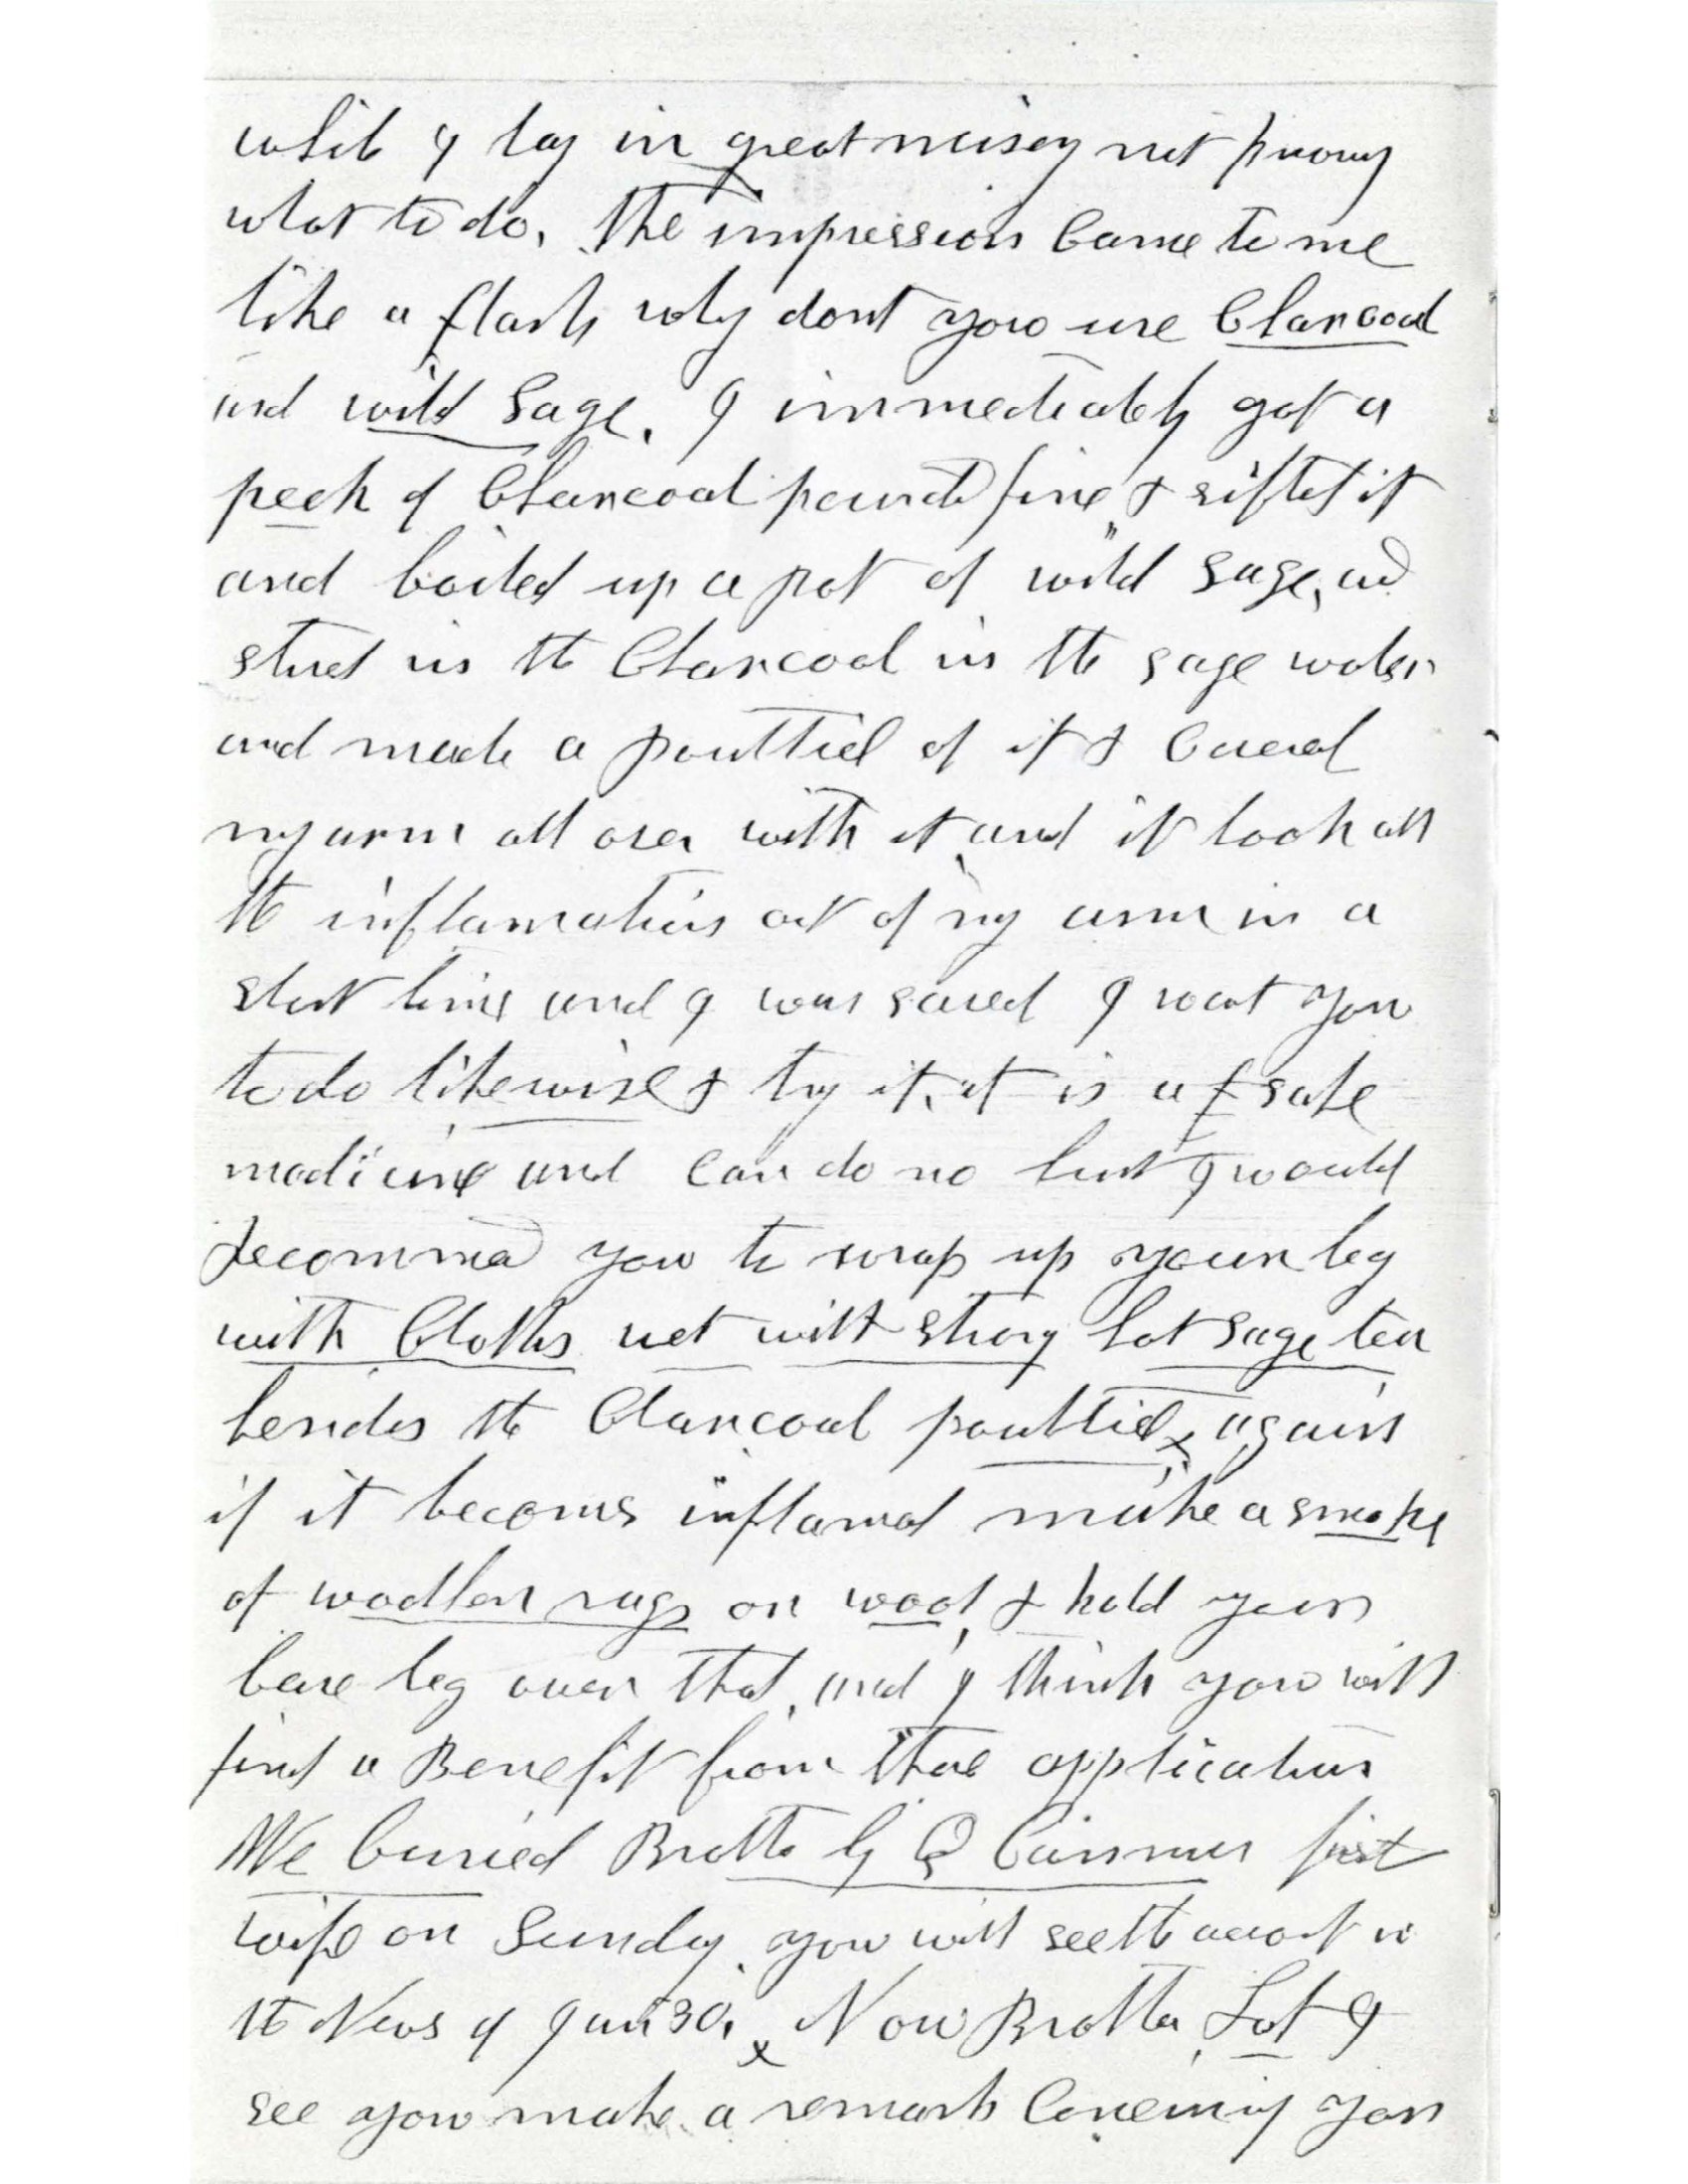 while I lay in great misery not knowing
what to do. The impression Came to me
like a flash why dont you use Charcoal
and wild Sage. I immediately got a
peck of Charcoal pound fine & sifted it
and boiled up a pot of wild sage, and
stired in the Charcoal in the sage water
and made a poulttice of it & Covered
my arm all over with it and it took all
the inflamation out of my arm in a
short time and I was saved I want you
to do likewise & try it, it is a safe
medicine and Can do no hurt I would
Recommend you to wrap up your leg
with Cloths wet with strong hot sage tea
besides the Charcoal poulttice, again
if it becomes inflamed make a smoke
of woollen rags or wool & hold your
bare leg over that, and I think you will
find a Benefit from these application
We buried Brother G Q Cannons first
wife on Sunday, you will see the account in
the News of Jan 30, Now Brother Lot I
see you make a remark Concerning your